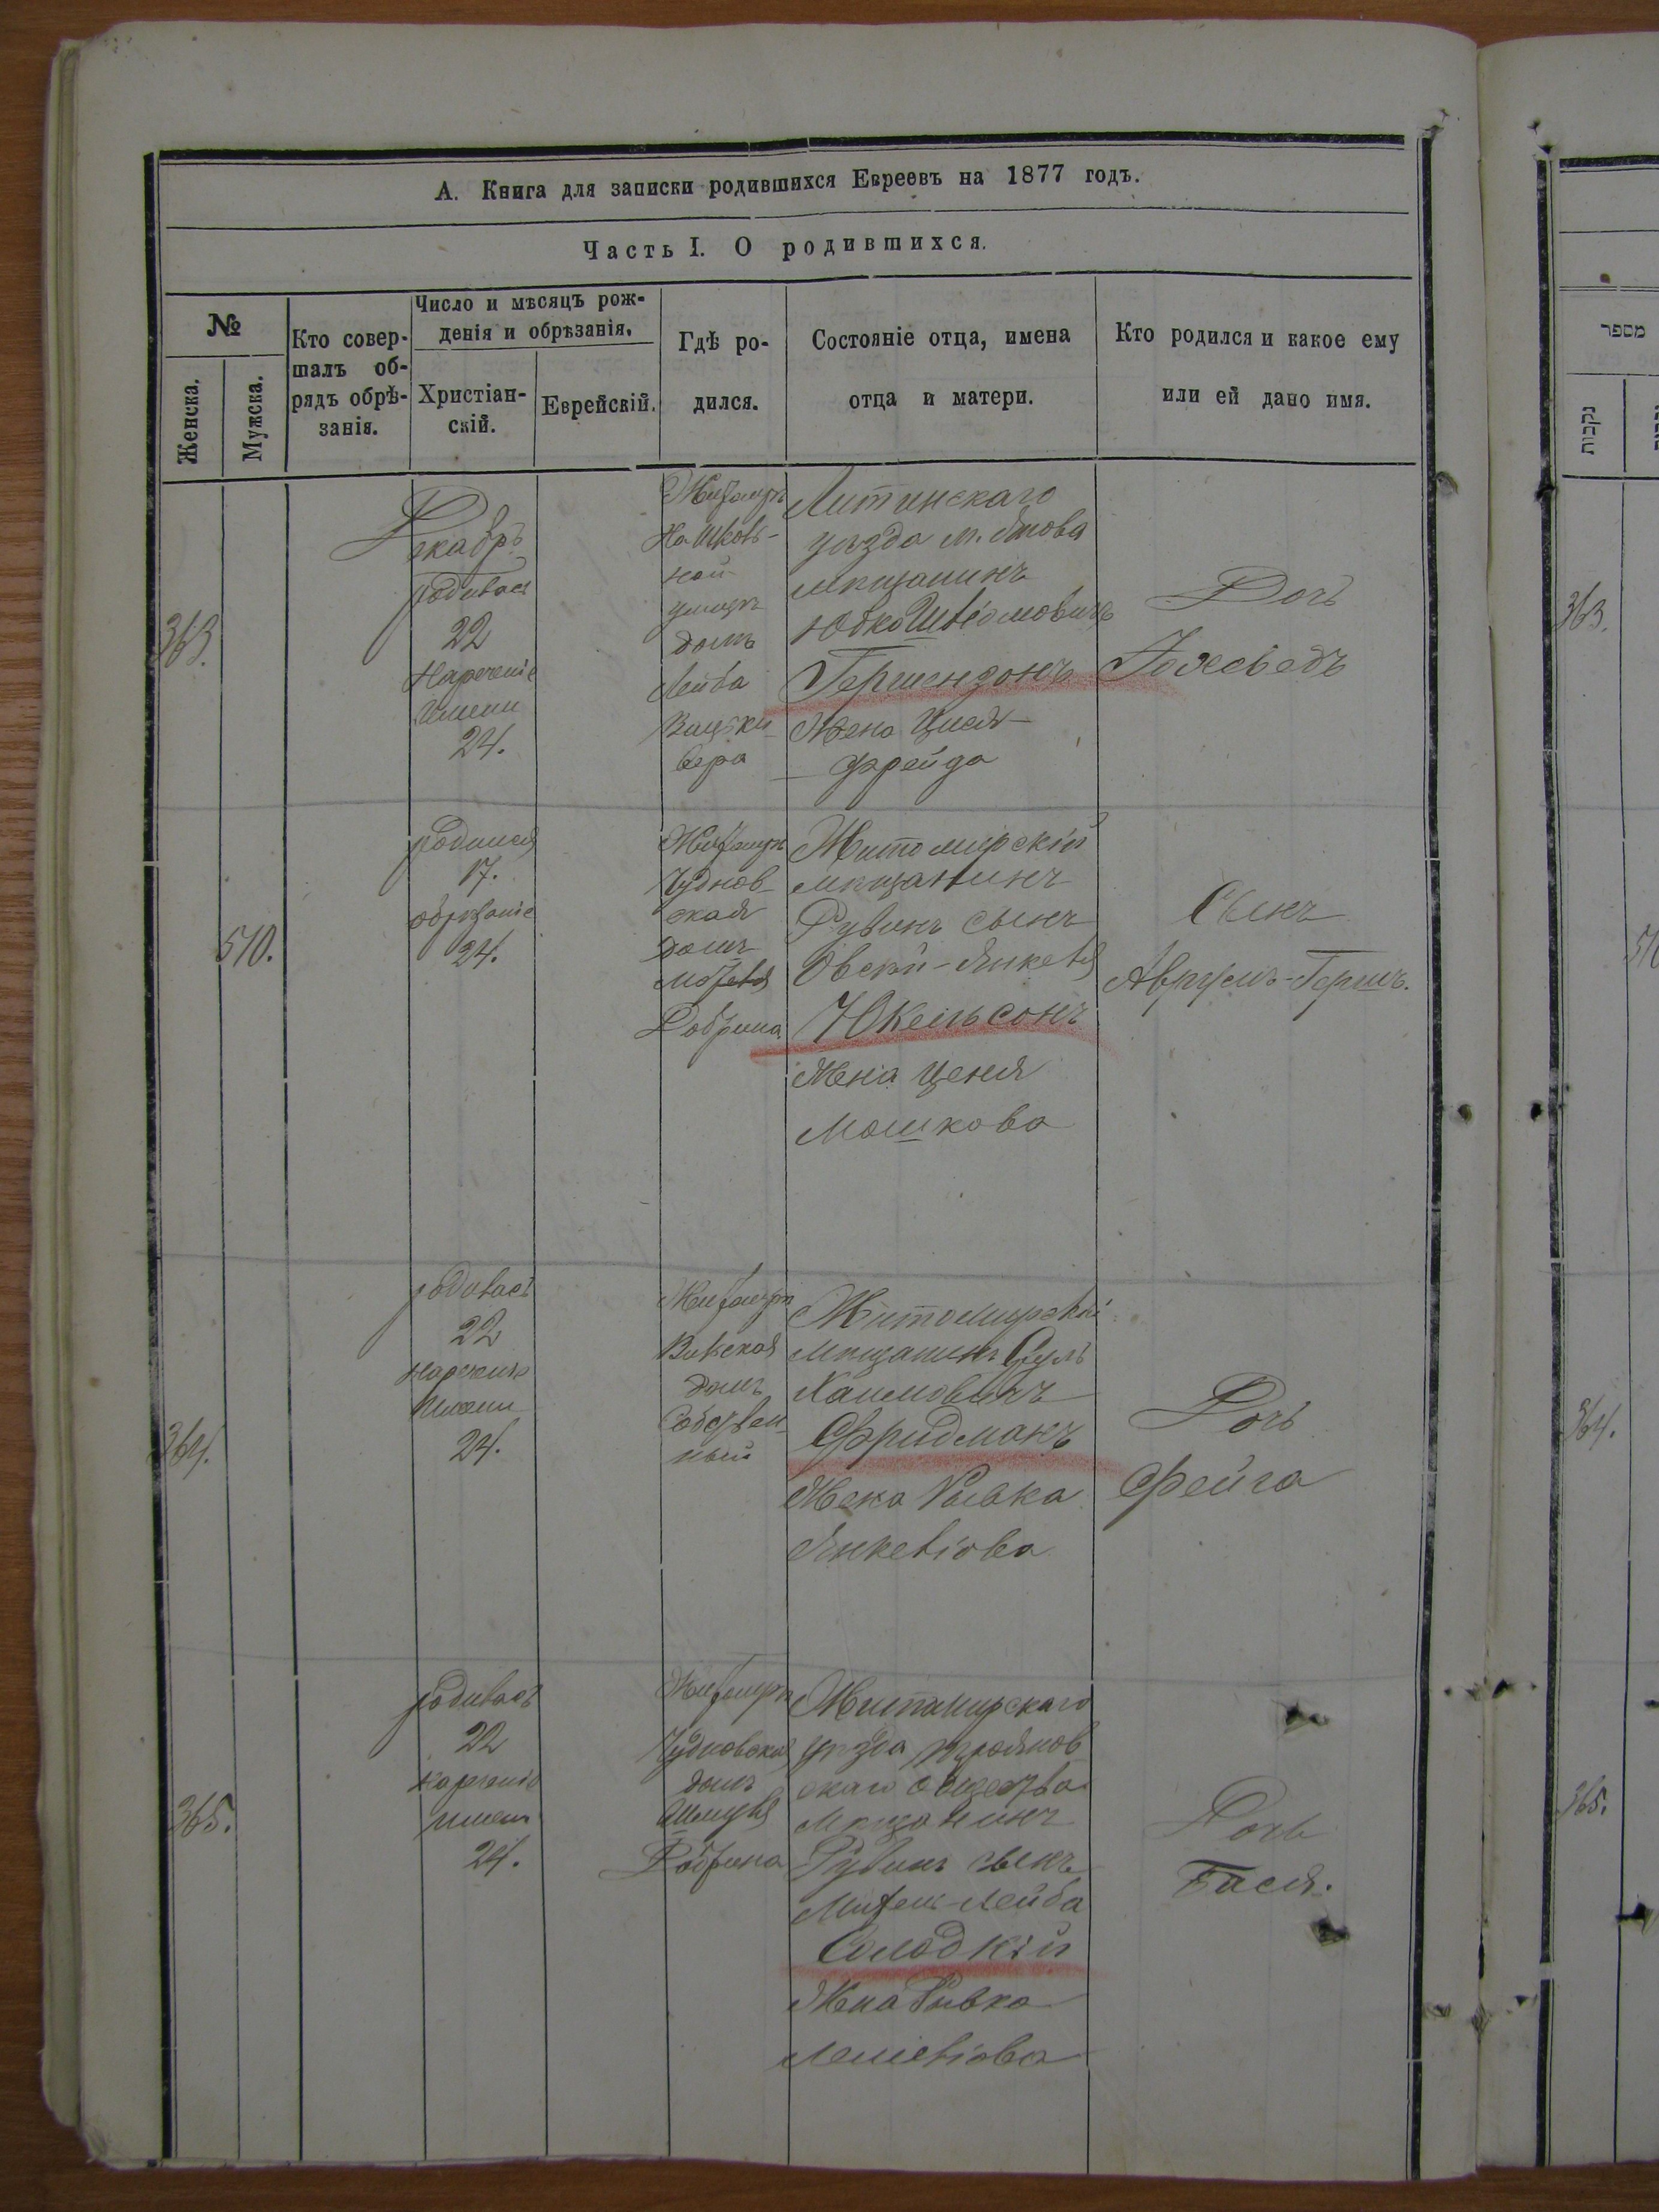 А. Книга для записки родившихся Евреевъ на 1877 годъ.
Часть I. О родившихся.
№
Женска.
Мужска.
Кто совер-
шалъ об-
рядъ обрѣ-
занія.
Число и мѣсяцъ рож-
денія и обрѣзанія.
Христіан-
скій.
Еврейскій.
Гдѣ ро-
дился.
Состояніе отца, имена
отца и матери.
Кто родился и какое ему
или ей дано имя.
363.
Декабрь
родилась
22
Нареченіе
Имени
24.
Житомиръ
На Шков-
ной
улицѣ
домъ
Лейба
вера
Литинскаго
уѣзда м.
мѣщанинъ
Юдко
Гершензонъ
Жена Цися-
Фрейда
Дочь
510.
родился
17.
обрѣзаніе
24.
Житомиръ
Чуднов-
ская
домъ
Добрина
Житомирскій
мѣщанинъ
Рувинъ сынъ
Овсѣй-Янкеля
Юкельсонъ
Жена Ценя
Мошкова
Сынъ
Аврумъ-Гершъ.
364.
родилась
22
нареченіе
Имени
24.
Житомиръ
домъ
Собствен-
ный
Житомирскій
мѣщанинъ Сруль
Хаимовичъ
Фридманъ
Жена Ривка
Янкеліова
Дочь
Фейга
365.
родилась
22
нареченіе
имени
24.
Житомиръ
Чудновская
домъ
Шмуля
Добрина
Житомирскаго
уѣзда Трояновс
скаго общества
Мѣщанинъ
Рувинъ сынъ
Лейба
Солодкій
Жена Ривка
Дочь
Бася.
מספר
נקבות
363.
510
364.
365.